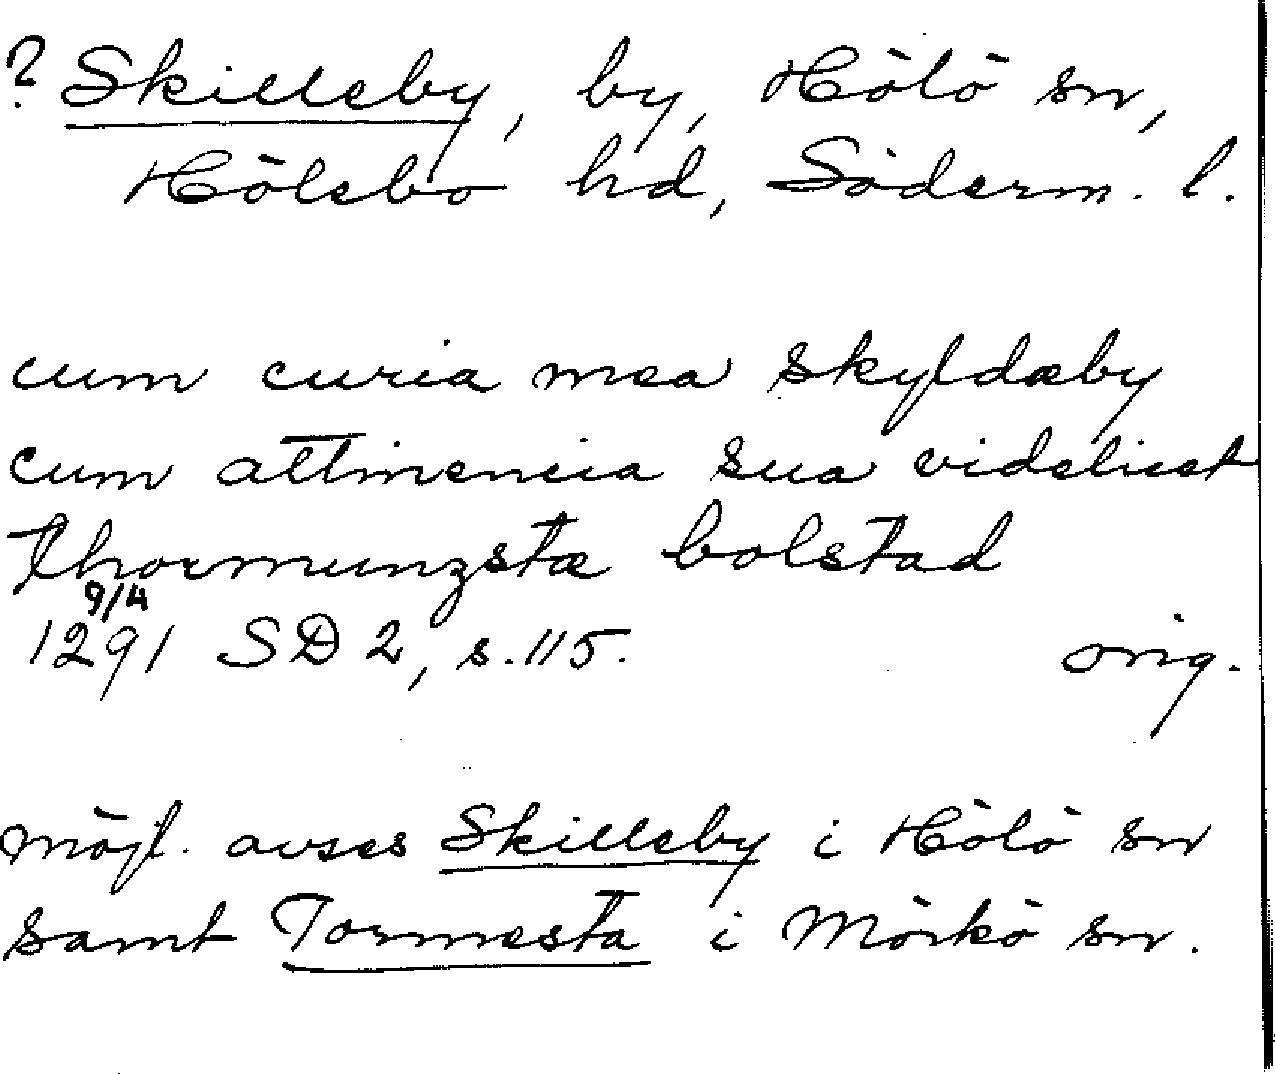 ? Skilleby, by, Hölö sn,
Hölebo hd, Söderm. l.
cum curia mea skyldæby
cum attinencia sua videlicet
thormunzstæ bolstad
9/4
1291 SD 2, s. 115. orig.
möjl. avses Skilleby i Hölö sn
samt Tormesta i Mörkö sn.